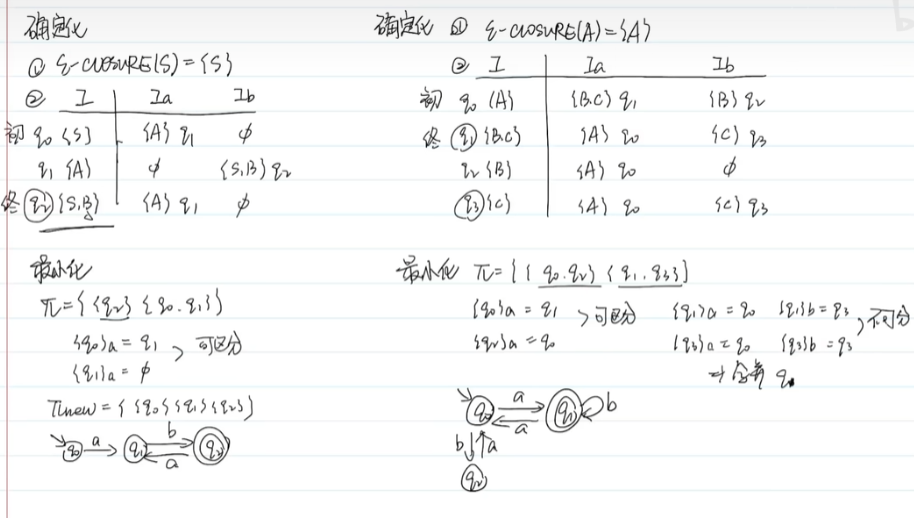 确定化
① ε-CLOSURE(S)={S}
② I Ia Ib
初 q0 {S} {A} q1 ϕ
q1 {A} ϕ {S,B} q2
终 q2 {S,B} {A} q1 ϕ
最小化
π={{q2} {q0.q1}}
{q0}a = q1
{q1}a = ϕ
可区分
πnew={{q0}{q1}{q2}}
q0 a q1 b a q2
确定化 ① ε-CLOSURE(A)={A}
② I Ia Ib
初 q0 {A} {B.C} q1 {B} q2
终 q1 {B.C} {A} q0 {C} q3
q2 {B} {A} q0 ϕ
q3 {C} {A} q0 {C} q3
最小化 π={{q0.q2} {q1.q3}}
{q0}a = q1 可区分 {q1}a = q0 {q1}b = q3 不可分
{q2}a = q0 {q3}a = q0 {q3}b = q3
⇒ 合并
q0 a a q1 b
b a
q2